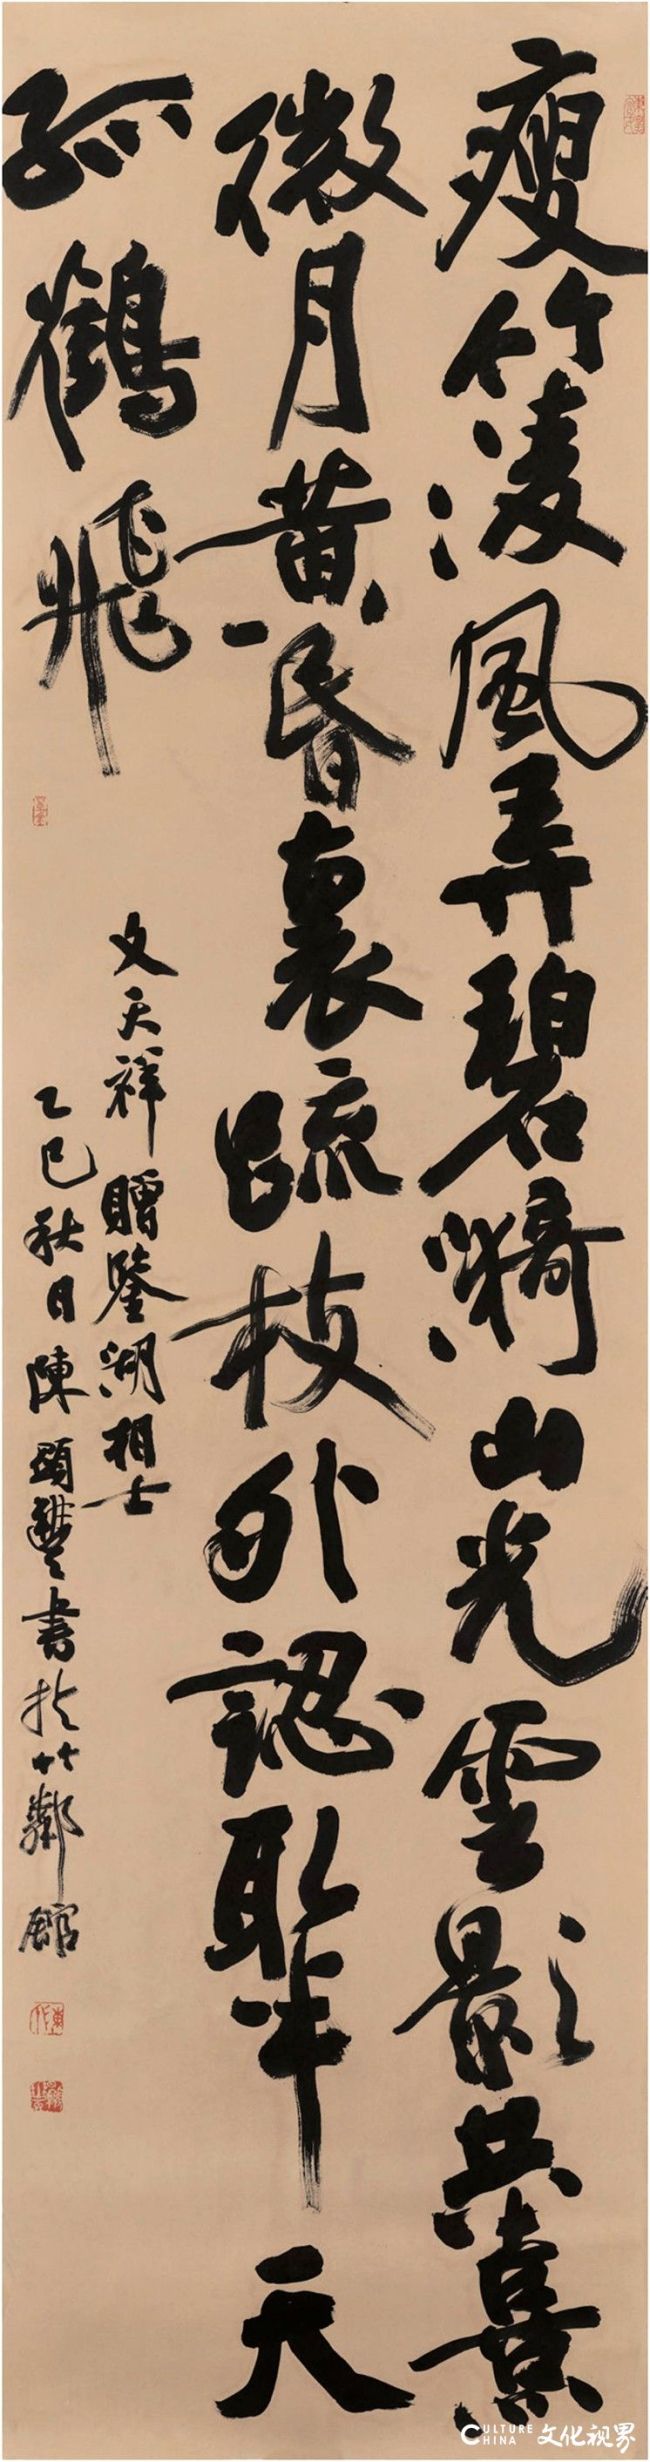 瘦竹凌風弄碧漪山光雲影共熹
微月黄昏裏疏枝外認取半天
孤鶴飛
文天祥贈鑒湖相士
乙巳秋日陳豐書於竹鄰館
CULTURE
CHINA
文化视界